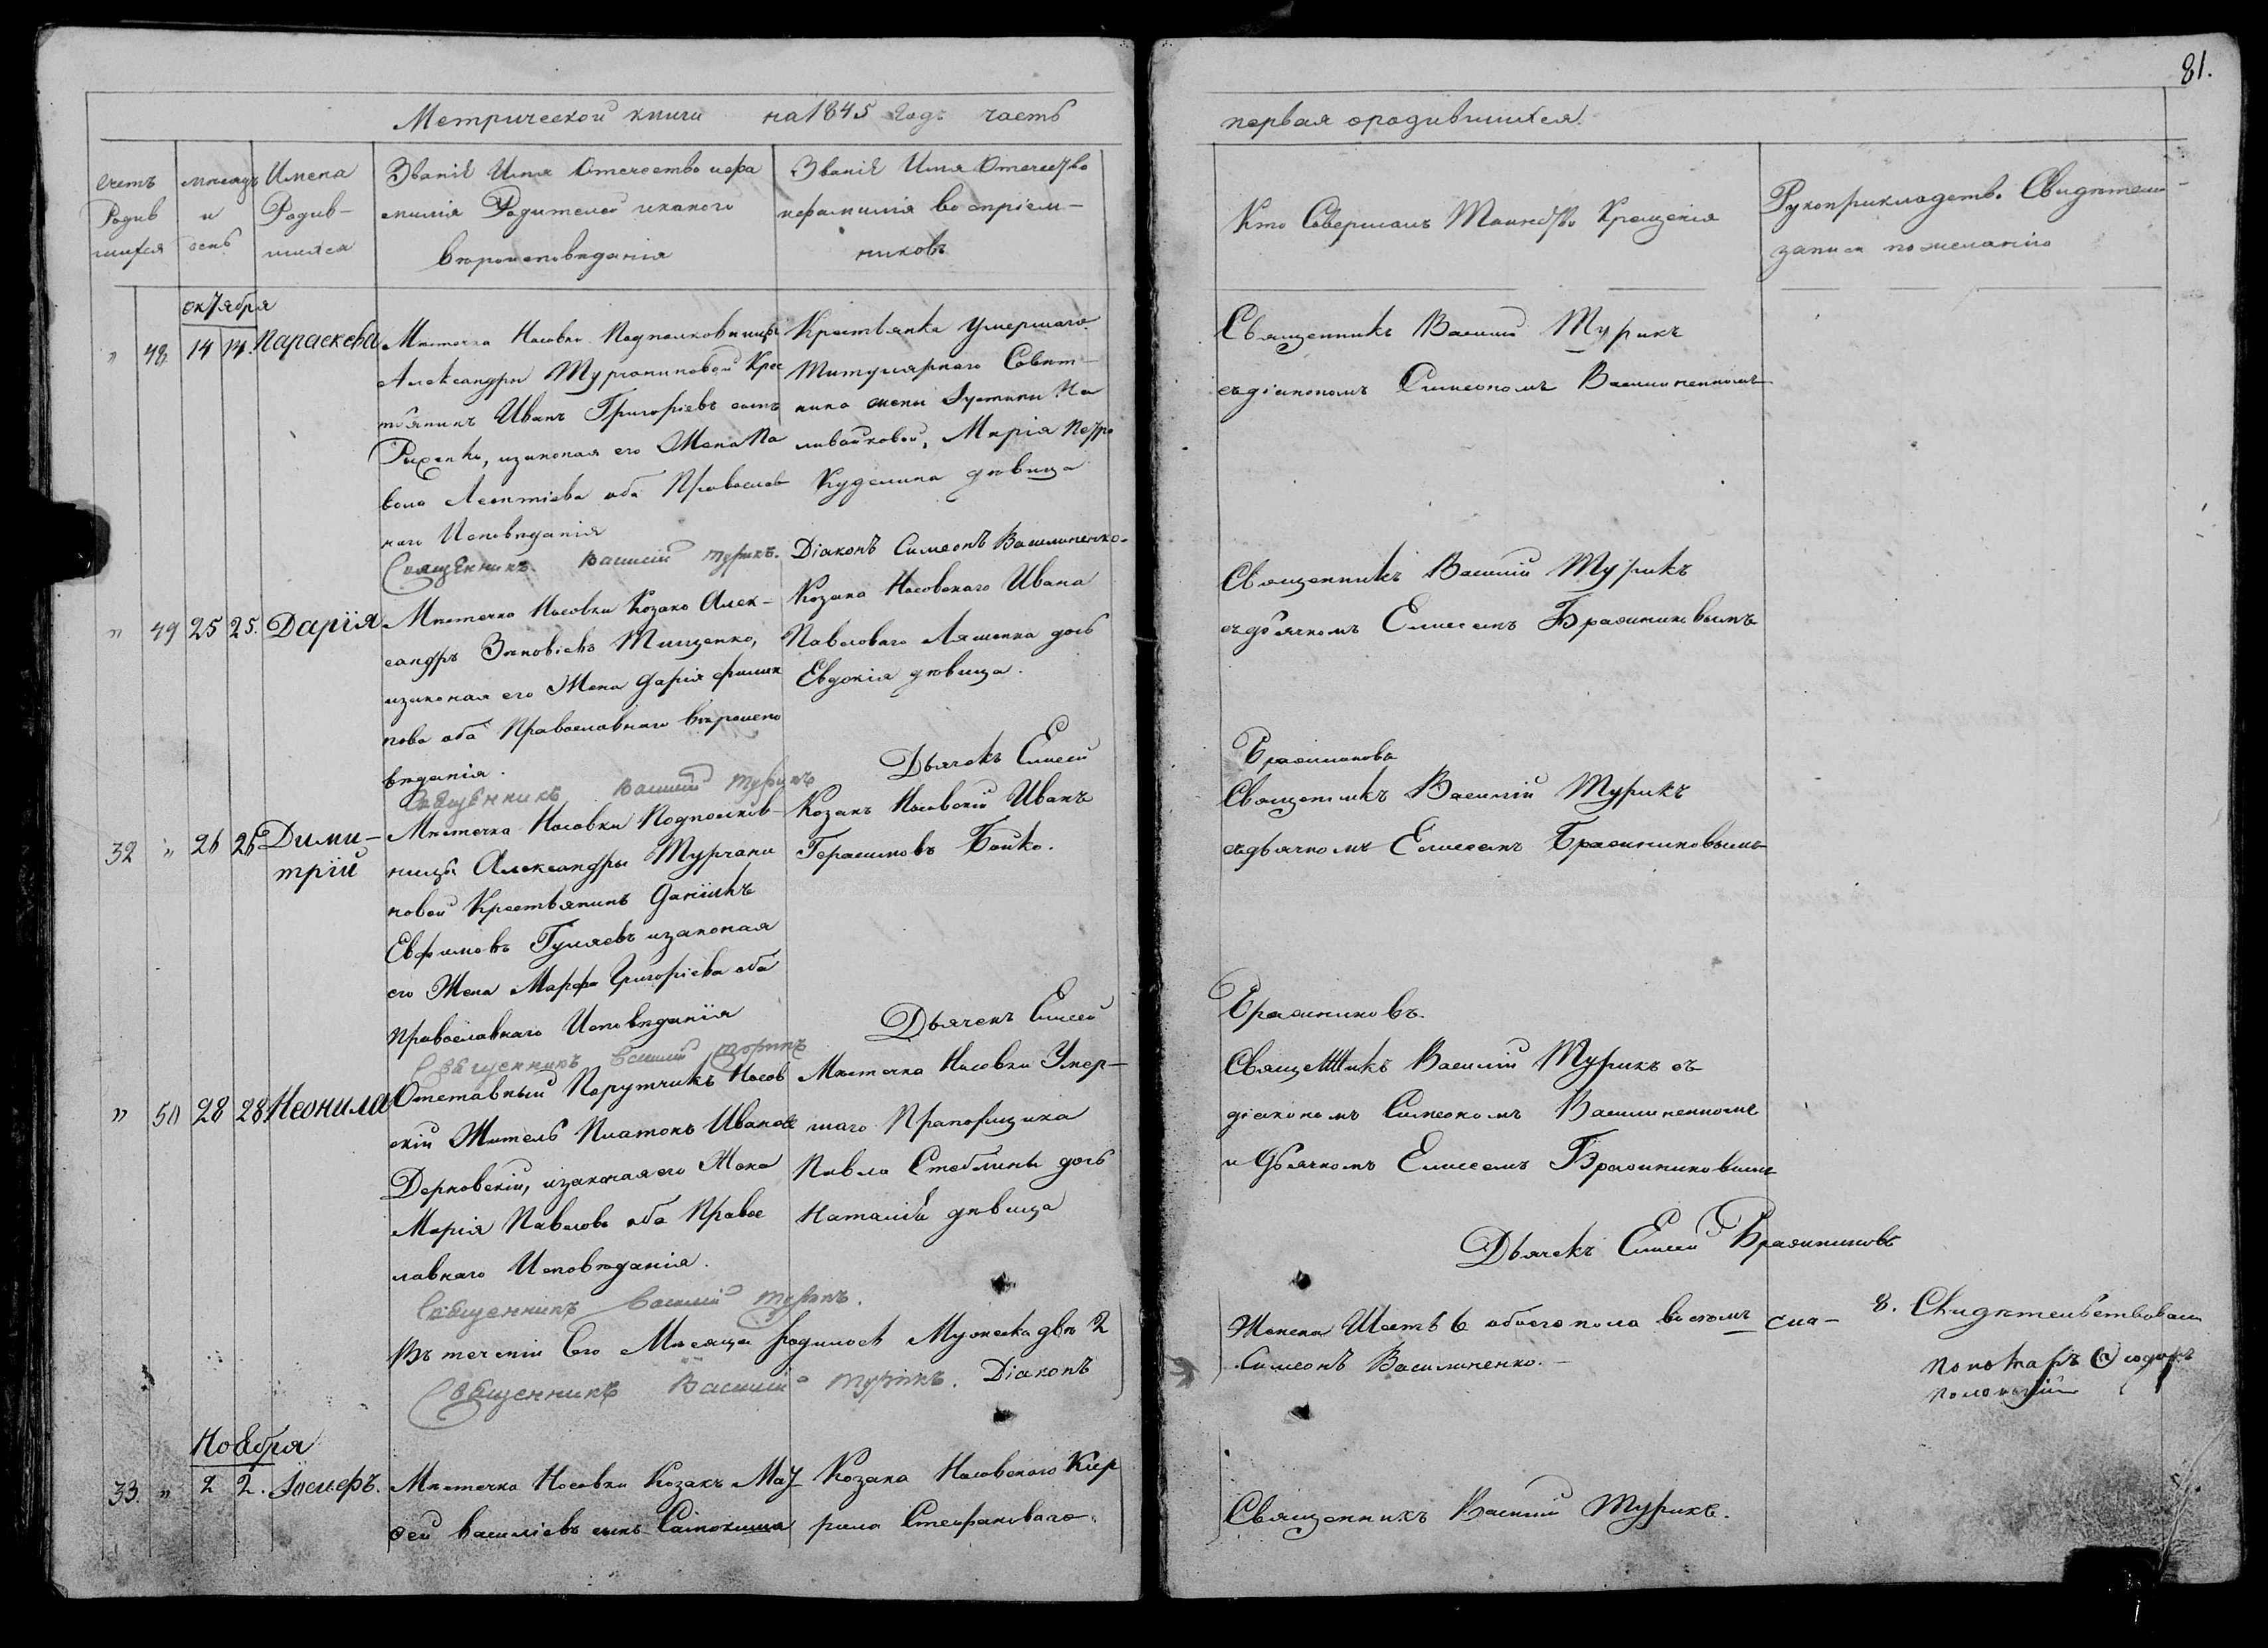 81.
Метрической книги на 1845 Годъ часть
первая ородившихся.
Счетъ Родив шихся
мѣсяцъ и день
Имена Родив- шихся
Званiе Имя Отечество ифа
милiя Родителей икакого
вѣроисповѣданiя
Званiе Имя Отечество
ифамилiя воспрiем-
никовъ
Кто Совершалъ Таинство Крещенiя
Рукоприкладство Свидѣтелей
записи по желанiю
октября
" 48 14 14. Параскева
Мѣстечка Носовки Подполковницы
Александры Турчаниновой Крес
тьянинъ Иванъ Григорiевъ сынъ
изаконая его Жена Па
вела Леонтiева оба Православ
наго Исповѣданiя
Священникъ Василiй Турикъ.
Крестьянка умершаго
Титулярнаго Совѣт-
ника жены Іустины На
ливайковой, Марiя Петро
Куделина дѣвица
Дiаконъ Симеонъ Василиненко.
Священникъ Василiй Турикъ
съдiакономъ Симеономъ Василиненкомъ
" 49 25 25. Дарïя
Мѣстечка Носовки Козакъ Алек-
сандръ Зѣновiевъ Тищенко,
изаконая его Жена Дарiя Филип
пова оба Православнаго вѣроиспо
вѣданiя.
Священникъ Василiй Турикъ
Козака Носовскаго Ивана
Павловаго Ляшенка дочь
Евдокiя дѣвица.
Дьячекъ Елисей
Священникъ Василiй Турикъ
съдьячкомъ Елисеемъ Бражниковымъ
Бражниковъ
32 " 26 26 Дими-
трiй
Мѣстечка Носовки Подполков-
ницы Александры Турчани
новой Крестьянинъ Данiилъ
Евфимовъ Гуляевъ изаконая
его Жена Марфа Григорiева оба
Православнаго Исповѣданiя
Священникъ Василiй Турикъ
Козакъ Носовскiй Иванъ
Герасимовъ Бойко.
Дьячекъ Елисей
Священникъ Василiй Турикъ
съдьячкомъ Елисеемъ Бражниковымъ
Бражниковъ.
" 50 28 28 Неонила
Отставный Порутчикъ Носов
скiй Житель Платонъ Ивановъ
Дерновскiй, изаконая его Жена
Марiя Павлова оба Правос
лавнаго Исповѣданiя.
Священникъ Василiй Турикъ.
Мѣстечка Носовки Умер-
шаго Прапорщика
Павла Стеблины дочь
Наталiя дѣвица
Священникъ Василiй Турикъ съ
дiакономъ Симеономъ Василиненкомъ
и Дьячкомъ Елисеемъ Бражниковымъ
Дьячекъ Елисей Бражниковъ
Въ теченiи Сего Мѣсяца родилось Мужеска двѣ 2
Женска Шесть 6 обоего пола восемь 8.
Священникъ Василiй Турикъ. Дiаконъ
Симеонъ Василиненко.
Свидѣтельствовалъ
Пономарь
Ноября
33. " 2 2. Іосифъ.
Мѣстечка Носовки Козакъ Мат
фей Василiевъ сынъ
Козака Носовскаго Кир
рила Стефановаго
Священникъ Василiй Турикъ.